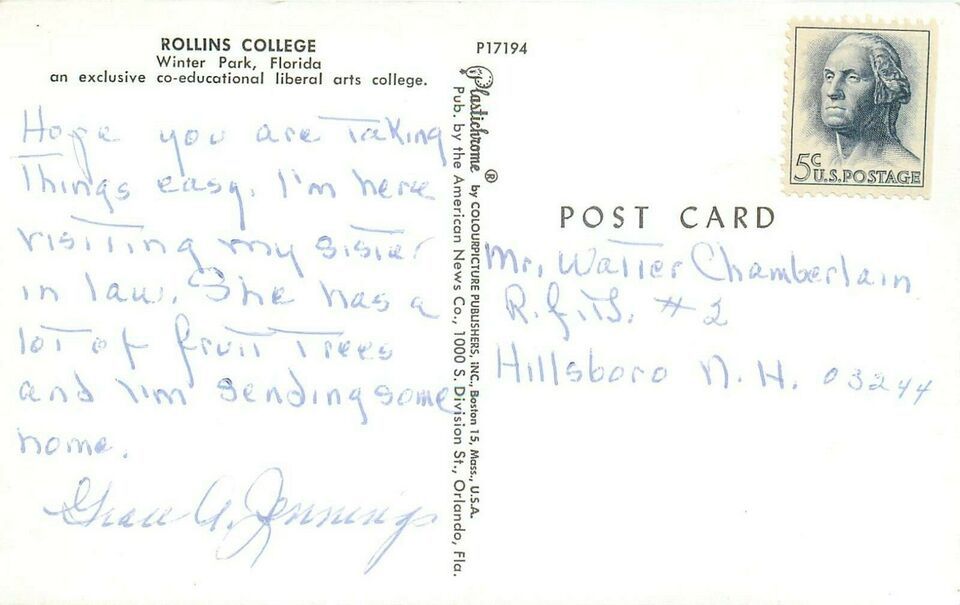 ROLLINS COLLEGE
Winter Park, Florida
an exclusive co-educational liberal arts college.
Hope you are taking
things easy. I'm here
visiting my sister
in law. She has a
lot of fruit trees
and I'm sending some
home.
Grace A. Jennings
P17194
Plastichrome® by COLOURPICTURE PUBLISHERS, INC., Boston 15, Mass., U.S.A.
Pub. by the American News Co., 1000 S. Division St., Orlando, Fla.
5c
U.S. POSTAGE
POST CARD
Mr. Walter Chamberlain
#2
Hillsboro N. H. 03244